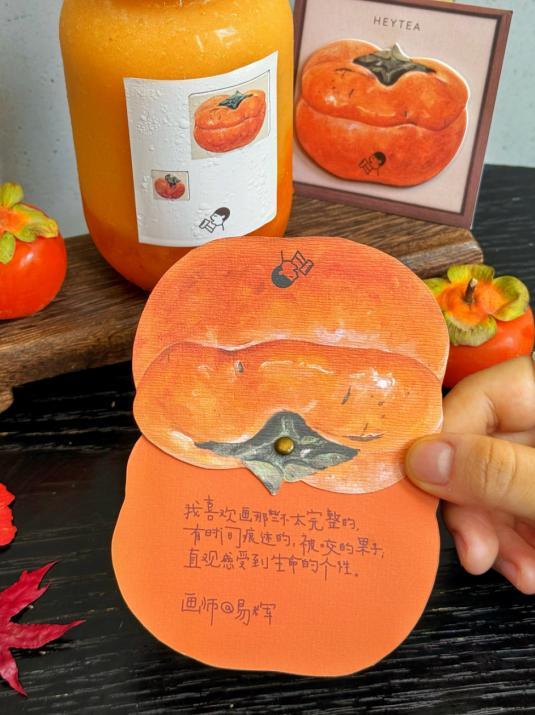 HEYTEA
我喜欢画那些不太完整的,
有时间痕迹的,被咬的果子,
直观感受到生命的个性。
画师@易辉